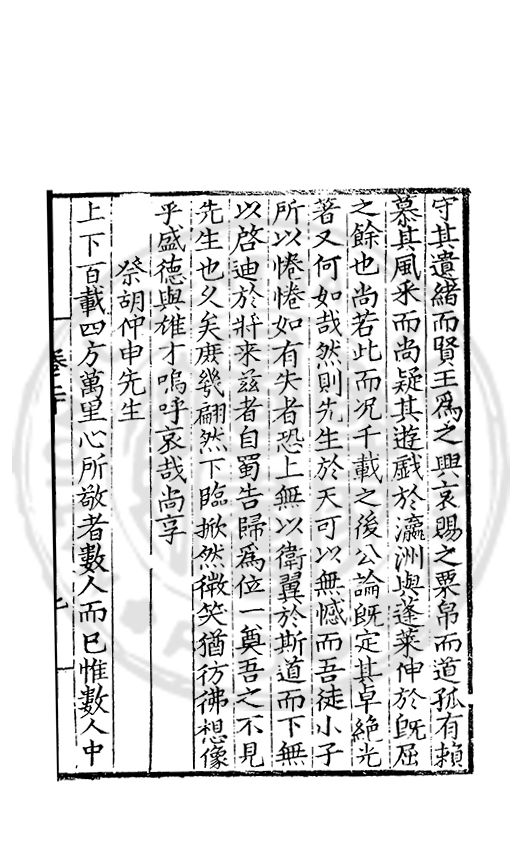 守其遺緒而賢王爲之興哀賜之粟帛而道孤有賴
慕其風采而尚疑其遊戲於瀛洲與蓬萊伸於旣屈
之餘也尚若此而况千載之後公論旣定其卓絶光
著又何如哉然則先生於天可以無憾而吾徒小子
所以惓惓如有失者恐上無以衛翼於斯道而下無
以啓迪於將來兹者自蜀告歸爲位一奠吾之不見
先生也久矣庶幾翩然下臨掀然微笑猶彷彿想像
乎盛德與雄才嗚呼哀哉尚享
祭胡仲申先生
上下百載四方萬里心所敬者數人而已惟數人中
卷二十